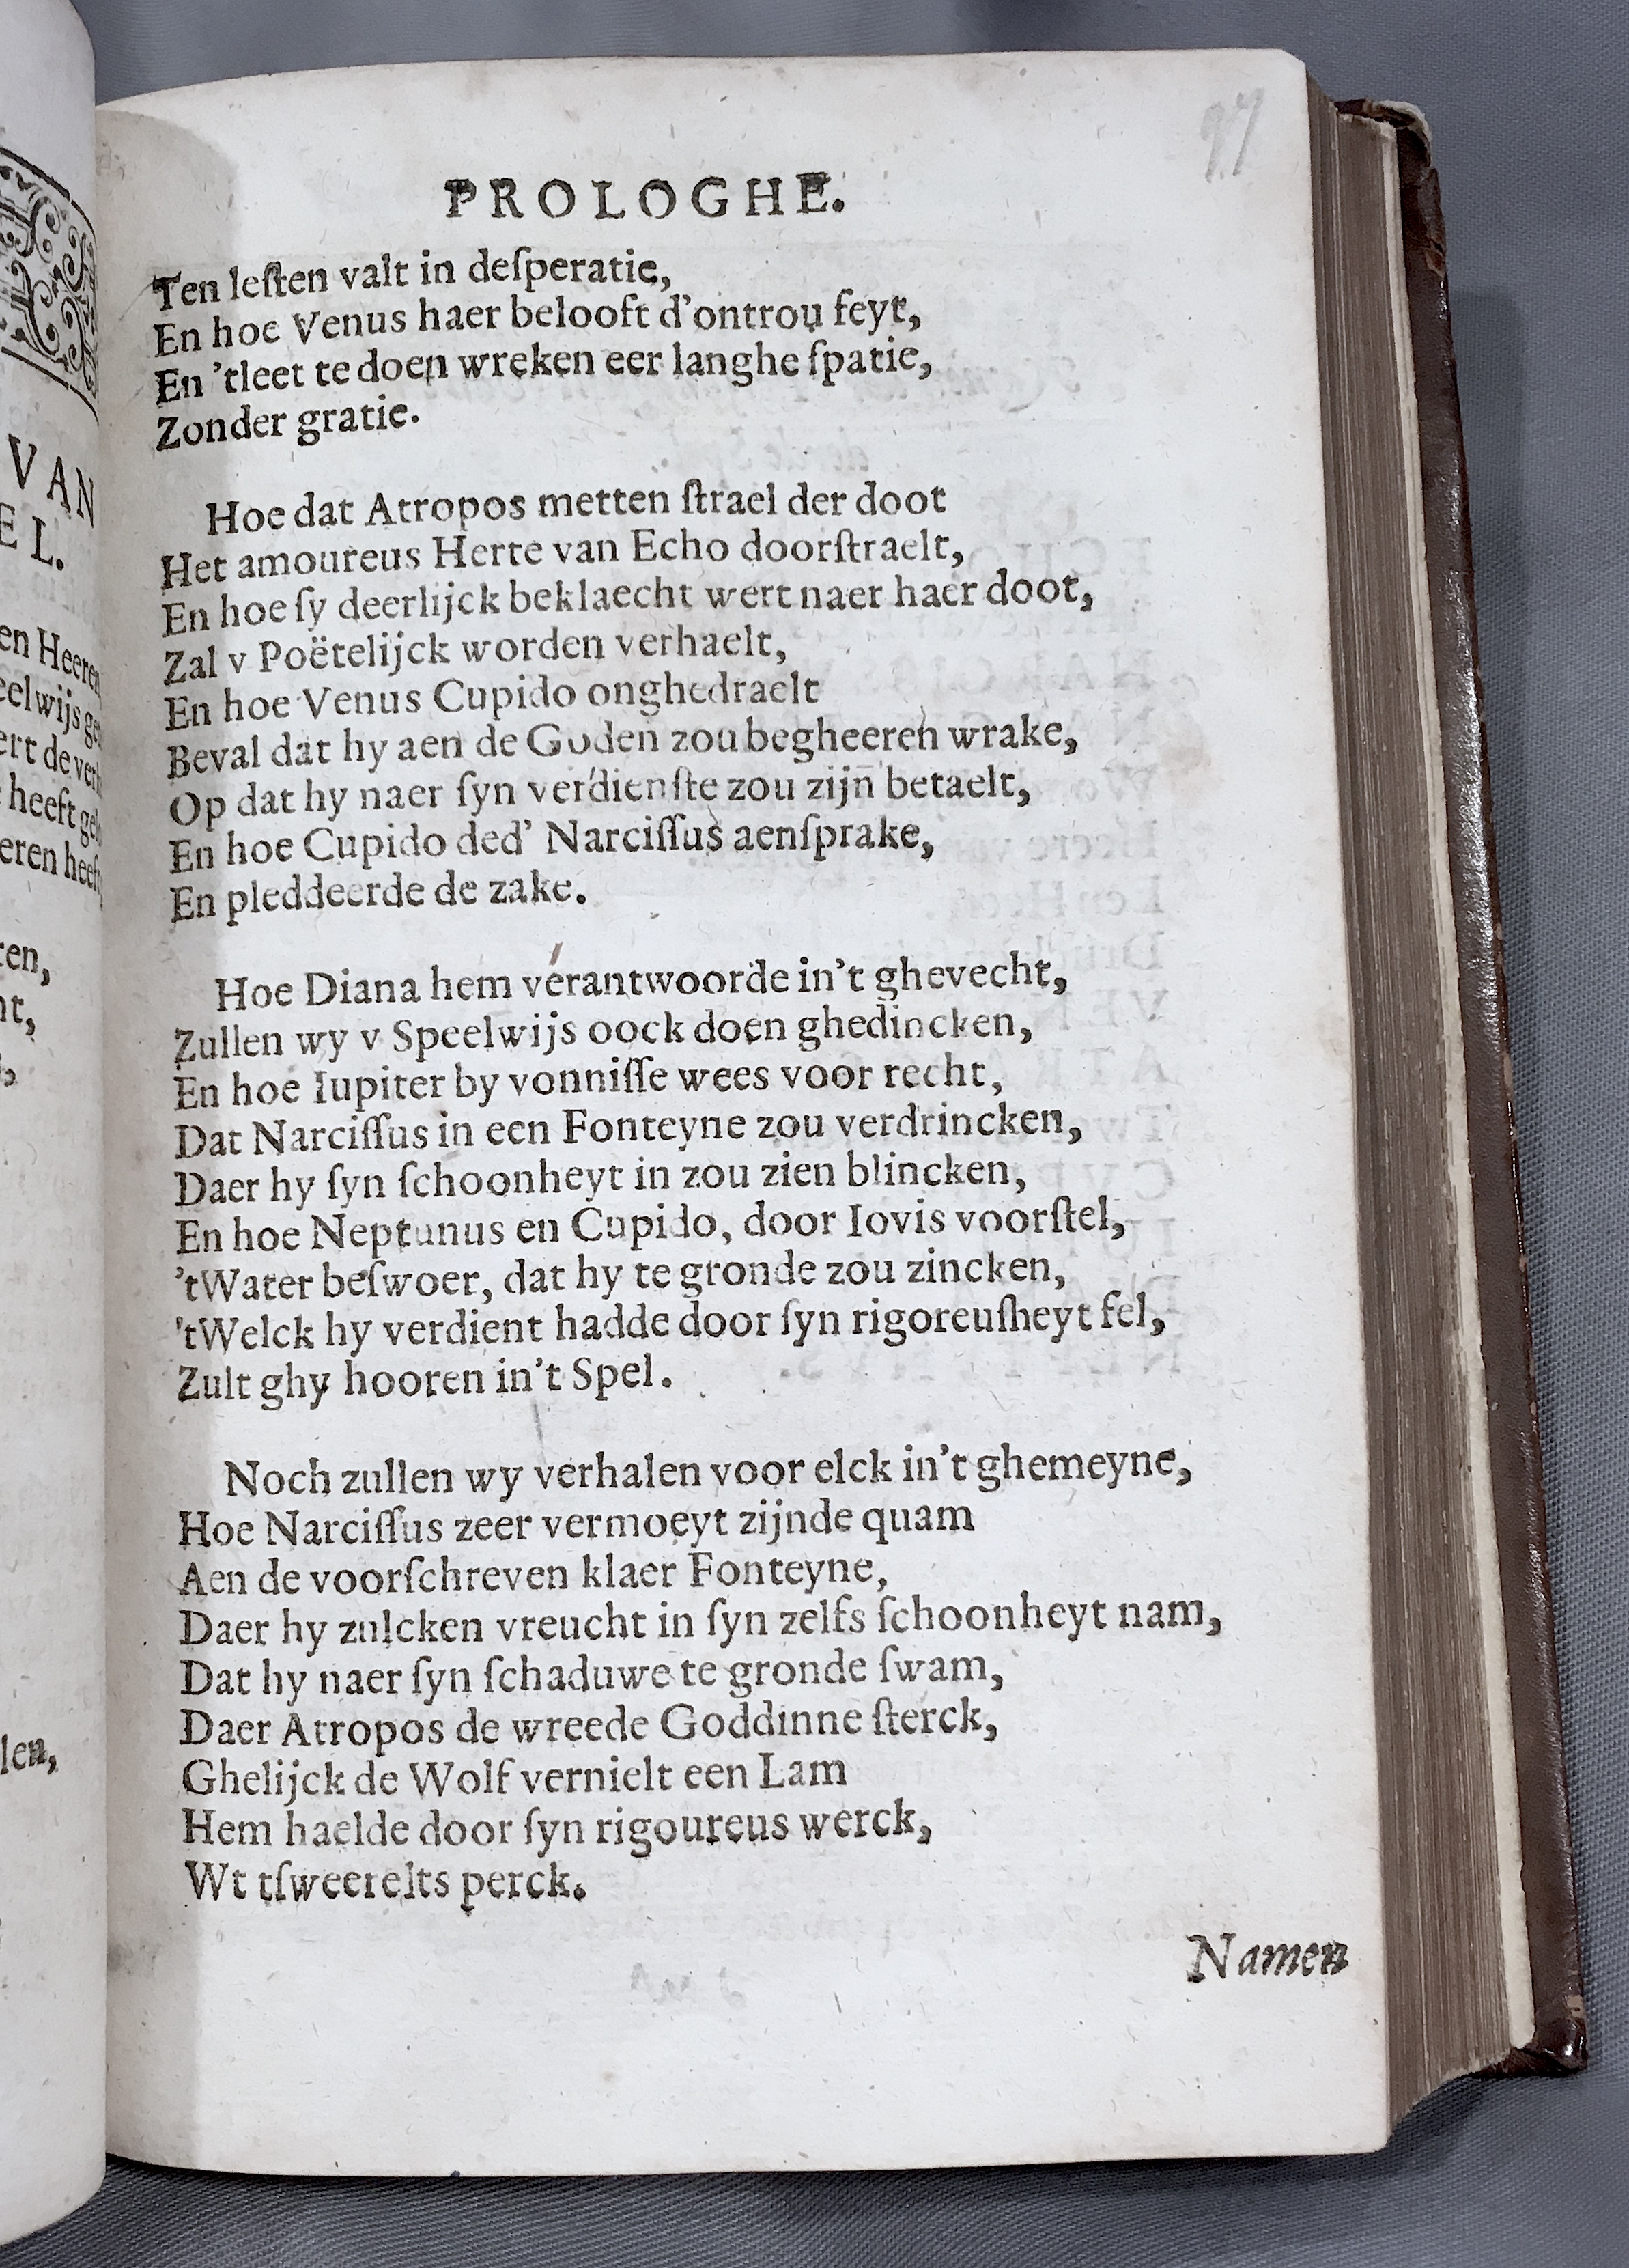 97
PROLOGHE.
Ten leſten valt in deſperatie,
En hoe Venus haer belooft d'ontrou feyt,
En 'tleet te doen wreken eer langhe ſpatie,
Zonder gratie.
Hoe dat Atropos metten ſtrael der doot
Het amoureus Herte van Echo doorſtraelt,
En hoe ſy deerlijck beklaecht wert naer haer doot,
Zal v Poëtelijck worden verhaelt,
En hoe Venus Cupido onghedraelt
Beval dat hy aen de Goden zou begheeren wrake,
Op dat hy naer ſyn verdienſte zou zijn betaelt,
En hoe Cupido ded' Narciſſus aenſprake,
En pleddeerde de zake.
Hoe Diana hem verantwoorde in't ghevecht,
Zullen wy v Speelwijs oock doen ghedincken,
En hoe Iupiter by vonniſſe wees voor recht,
Dat Narciſſus in een Fonteyne zou verdrincken,
Daer hy ſyn ſchoonheyt in zou zien blincken,
En hoe Neptunus en Cupido, door Iovis voorſtel,
'tWater beſwoer, dat hy te gronde zou zincken,
'tWelck hy verdient hadde door ſyn rigoreuſheyt fel,
Zult ghy hooren in't Spel.
Noch zullen wy verhalen voor elck in't ghemeyne,
Hoe Narciſſus zeer vermoeyt zijnde quam
Aen de voorſchreven klaer Fonteyne,
Daer hy zulcken vreucht in ſyn zelfs ſchoonheyt nam,
Dat hy naer ſyn ſchaduwe te gronde ſwam,
Daer Atropos de wreede Goddinne ſterck,
Ghelijck de Wolf vernielt een Lam
Hem haelde door ſyn rigoureus werck,
Wt tſweerelts perck.
Namen
VAN
EL.
en Heeren
eelwijs
ert de
heeft
eren
len,